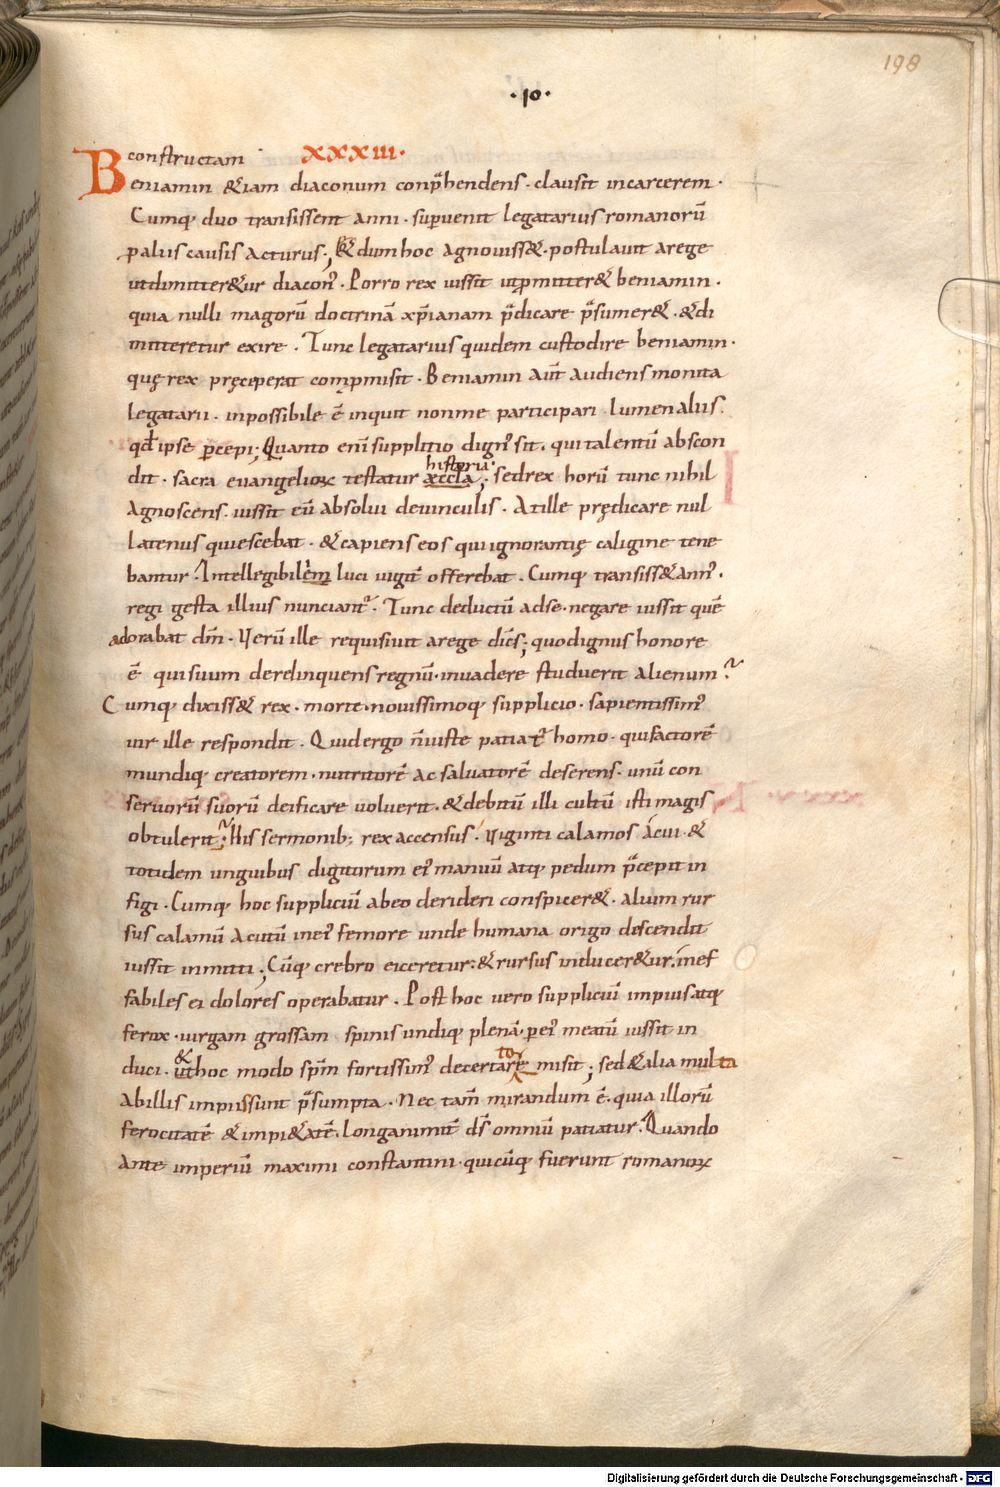 198
·10·
constructam XXXIII·
Beniamin &iam diaconum conp̄hendens · clausit incarcerem ·
Cumq; duo transissent anni · superuenit legatarius romanorū
p alus causis acturus ; &dum hoc agnouiss& · postulauit arege
utdimitter&ur diacon᾽ · Porro rex iussit utp̄mitter& beniamin ·
quia nulli magorū doctrinā xp̄ianam p̄dicare p̄sumer& · &di
mitteretur exire · Tunc legatarius quidem custodire beniamin ·
quę rex pręceperat comp̄misit · Beniamin aūt audiens monita
legatarii · inpossibile ē inquit nonme participari lumen aliis ·
qd̄ ipse p̄cepi ; Quanto enī supplitio dign᾽ sit · qui talentū abscon
dit · sacra euangelioꝝ testatur historia xccla ; sedrex horū tunc nihil
agnoscens · iussit eū absolui deuinculis · Atille prędicare nul
latenus quiescebat · &capiens eos qui ignorantię caligine tene
bantur · Intellegibilēm luci iugit᾽ offerebat · Cumq; transiss& ann᾽ ·
regi gesta illius nunciant᾽ · Tunc deductū adse · negare iussit quē
adorabat dm̄ · Verū ille requisiuit arege dicēs ; quo dignus honore
ē qui suum derelinquens regnū · inuadere studuerit alienum ?
Cumq; dixiss& rex · morte · nouissimoq; supplicio · sapientissim᾽
uir ille respondit · Quid ergo n̄ iuste patiat᾽ homo · qui factorē
mundiq; creatorem · nutritorē ac saluatorē deserens · unū con
seruorū suorū deificare uoluerit · &debitū illi cultū isti magis
obtulerit ? His sermonib; rex accensus · uiginti calamos acui · &
totidem unguibus digitorum ei᾽ manuū atq; pedum p̄cepit in
figi · Cumq; hoc suppliciū abeo derideri conspicer& · alium rur
sus calamū acutū inei᾽ femore unde humana origo descendit
iussit inmitti ; Cūq; crebro eiceretur · &rursus inducer&ur · inef
fabiles ei dolores operabatur · Post hoc uero suppliciū impius atq;
ferox · uirgam grossam spinis undiq; plenā · p ei᾽ meatū iussit in
duci · & uthoc modo spm̄ fortissim᾽ decertatoris misit ; sed &alia multa
abillis impiis sunt p̄sumpta · Nec tam̄ mirandum ē · quia illorū
ferocitatē &impi&atē · longanimit᾽ ds̄ omniū patiatur · Quando
ante imperiū maximi constantini · quicūq; fuerunt romanoꝝ
Digitalisierung gefördert durch die Deutsche Forschungsgemeinschaft - DFG